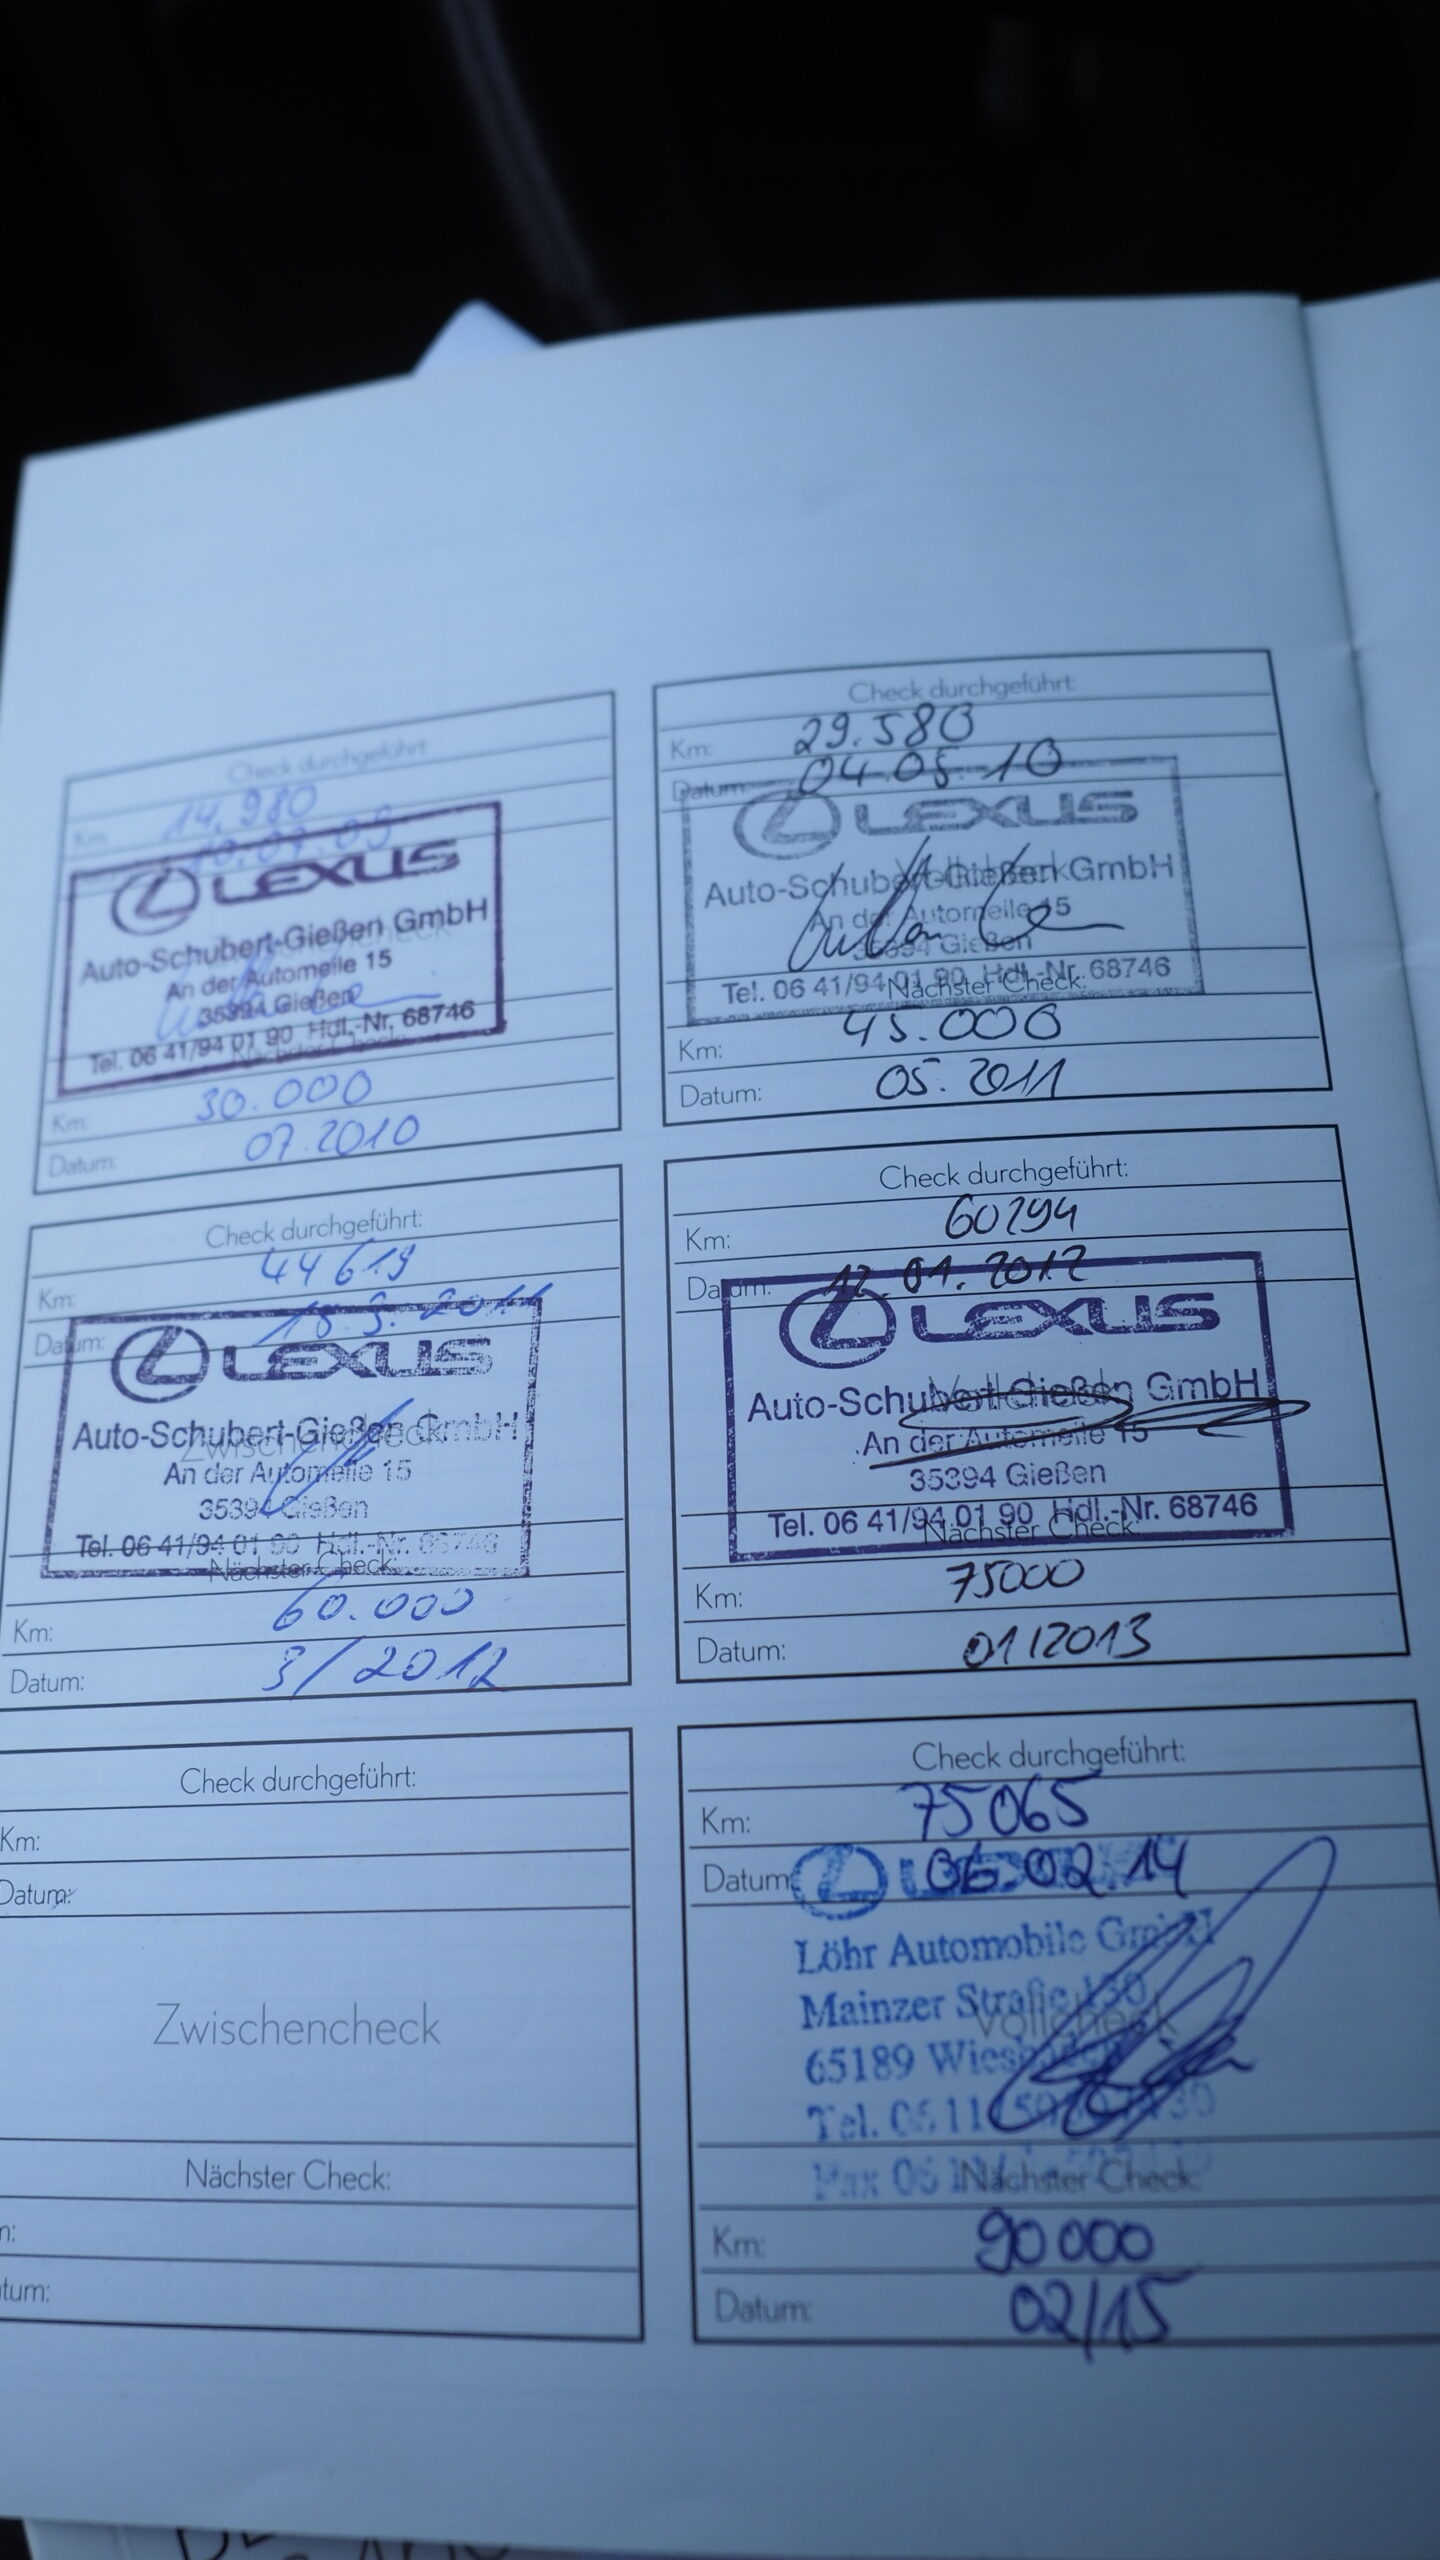 Check durchgeführt:
Km: 14.980
10.07.09
LEXUS
Auto-Schubert-Gießen GmbH
An der Automeile 15
35394 Gießen
Tel. 06 41/94 01 90 Hdl.-Nr. 68746
Nächster Check:
Km: 30.000
Datum: 07.2010
Check durchgeführt:
Km: 29.580
Datum: 04.05.10
LEXUS
Vollcheck
Auto-Schubert-Gießen GmbH
An der Automeile 15
35394 Gießen
Tel. 06 41/94 01 90 Hdl.-Nr. 68746
Nächster Check:
Km: 45.000
Datum: 05.2011
Check durchgeführt:
Km: 44619
Datum: 18.3.2011
LEXUS
Auto-Schubert-Gießen GmbH
Zwischencheck
An der Automeile 15
35394 Gießen
Tel. 06 41/94 01 90 Hdl.-Nr. 68746
Nächster Check:
Km: 60.000
Datum: 3/2012
Check durchgeführt:
Km: 60294
Datum: 12.01.2012
LEXUS
Vollcheck
Auto-Schubert-Gießen GmbH
An der Automeile 15
35394 Gießen
Tel. 06 41/94 01 90 Hdl.-Nr. 68746
Nächster Check:
Km: 75000
Datum: 01/2013
Check durchgeführt:
Km:
Datum:
Zwischencheck
Nächster Check:
m:
tum:
Check durchgeführt:
Km: 75065
Datum: 06.02.14
LEXUS
Löhr Automobile GmbH
Mainzer Straße 130
Vollcheck
65189 Wiesbaden
Tel. 0611
Fax 06
Nächster Check:
Km: 90 000
Datum: 02/15